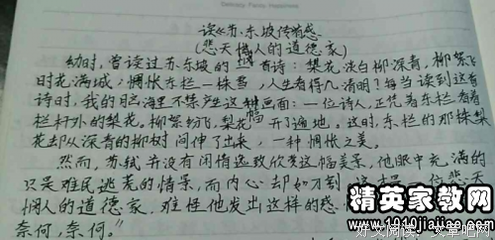 读《苏东坡传》有感
(悲天悯人的道德家)
幼时,曾读过苏东坡的一首诗:梨花淡白柳深青,柳絮飞
时花满城,惆怅东栏一株雪,人生看得几清明?每当读到这首
诗时,我的脑海里不禁产生这种画面:一位诗人,正凭着东栏看着
栏杆外的梨花,柳絮纷飞,梨花开了遍地,这时,东栏的那株梨
花却从深青的柳树间伸了出来,一种惆怅之美。
然而,苏轼并没有闲情逸致欣赏这幅美景,他眼中充满的
只是难民逃荒的情景,而内心却如刀割,这才是一位悲天
悯人的道德家,难怪他发出这样的感
奈何,奈何。"
精英家教网
www.1010jiajiao.com
好文阅读,文章吧网